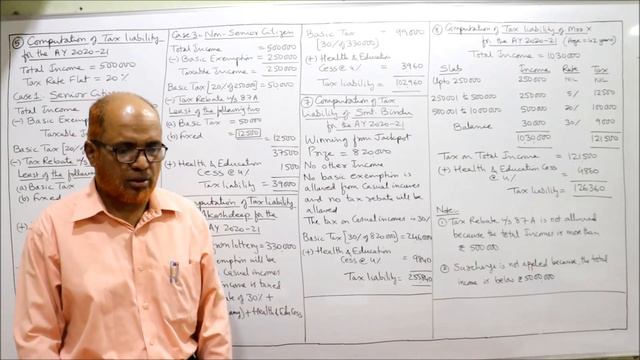 ⑤ Computation of Tax liability
for the AY 2020-21
Total Income = 500000
Tax Rate Flat = 20%
Case 1. Senior Citizen
Total Income
(-) Basic Exempt
Taxable In
Basic Tax [20%
(-) Tax Rebate
Least of the following
(a) Basic Tax
(b) Fixed
Case 2: Non-Senior Citizen
Total Income = 500000
(-) Basic Exemption = 250000
Taxable Income = 250000
Basic Tax [20% of 250000] = 50000
(-) Tax Rebate u/s 87A
Least of the following two
(a) Basic Tax = 50000
(b) Fixed = 12500 = 12500
37500
(+) Health & Education
Cess @ 4% 1500
Tax liability = 39000
Computation of Tax liability
Akashdeep for the
AY 2020-21
from lottery = 330000
Exemption will be
Casual incomes
income is taxed
rate of 30% +
+ Health & Edu Cess
Basic Tax = 99000
[30% of 330000]
(+) Health & Education
Cess @ 4% 3960
Tax liability = 102960
⑦ Computation of Tax
liability of Smt. Bindu
for the AY 2020-21
Winning from Jackpot
Prize = 820000
No other Income
No basic exemption is
allowed from Casual incomes
and no tax rebate will be
allowed
The tax on Casual incomes is 30%
Basic Tax [30% of 820000] = 246000
(+) Health & Education
Cess @ 4% 9840
Tax liability = 255840
⑧ Computation of Tax liability of Mr. X
for the AY 2020-21 (Age = 42 years)
Total Income = 1030000
Slab Income Rate Tax
Upto 250000 250000 NIL NIL
250001 to 500000 250000 5% 12500
500001 to 1000000 500000 20% 100000
Balance 30000 30% 9000
1030000 121500
Tax on Total Income = 121500
(+) Health & Education Cess @ 4% 4860
Tax liability = 126360
Note:
① Tax Rebate u/s 87A is not allowed
because the total Incomes is more than
₹ 500000
② Surcharge is not applied because the total
income is below ₹ 5000000